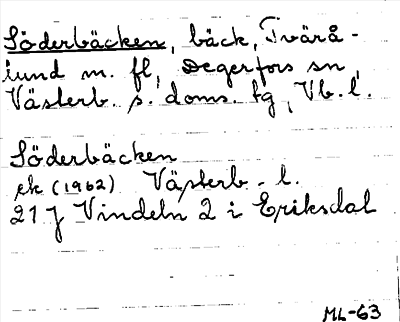 Söderbäcken, bäck, Tvärå-
lund m. fl, Degerfors sn,
Västerb. s:a doms. tg, Vb. l.
Söderbäcken
ek (1962) Västerb. l.
21 J Vindeln 2 i Eriksdal
ML-63